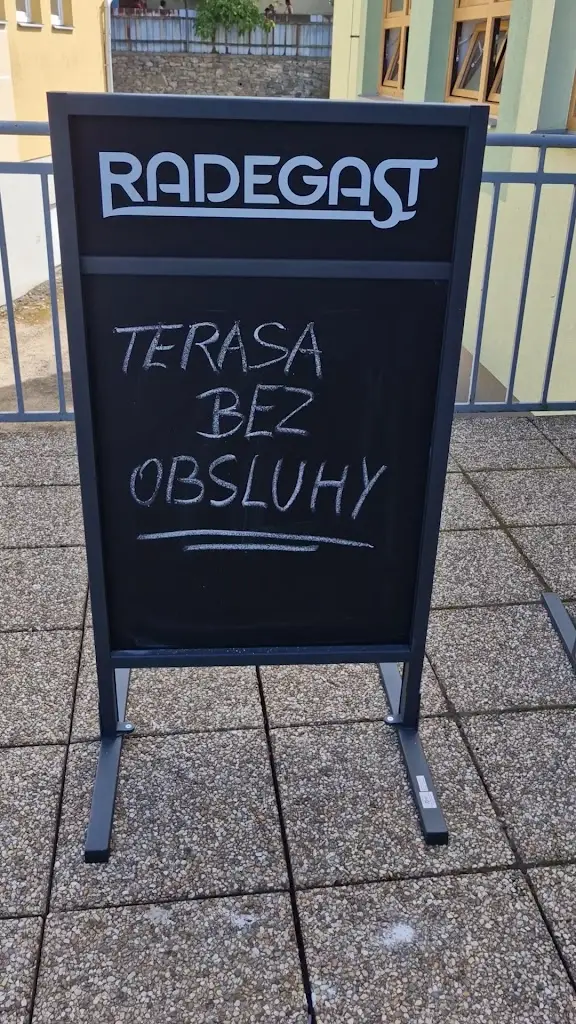 RADEGAST
TERASA
BEZ
OBSLUHY